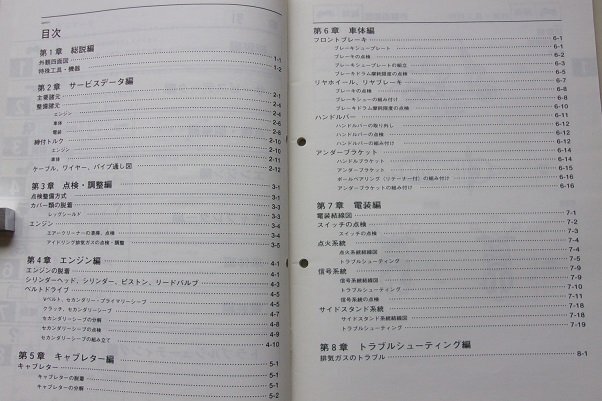 目次
第1章 総説編
外観四面図 1-1
特殊工具・機器 1-2
第2章 サービスデータ編
主要諸元 2-1
整備諸元 2-4
エンジン 2-4
車体 2-6
電装 2-8
締付トルク 2-10
エンジン 2-10
車体 2-11
ケーブル、ワイヤー、パイプ通し図 2-12
第3章 点検・調整編
点検整備方式 3-1
カバー類の脱着 3-1
レッグシールド 3-1
エンジン 3-4
エアークリーナーの清掃、点検 3-4
アイドリング排気ガスの点検・調整 3-5
第4章 エンジン編
エンジンの脱着 4-1
シリンダーヘッド、シリンダー、ピストン、リードバルブ 4-3
ベルトドライブ 4-5
Vベルト、セカンダリー・プライマリーシーブ 4-5
クラッチ、セカンダリーシーブ 4-7
セカンダリーシーブの分解 4-8
セカンダリーシーブの点検 4-9
セカンダリーシーブの組み立て 4-10
第5章 キャブレター編
キャブレター 5-1
キャブレターの脱着 5-1
キャブレターの分解 5-2
第6章 車体編
フロントブレーキ 6-1
ブレーキシュープレート 6-1
ブレーキの点検 6-2
ブレーキシュープレートの組立 6-3
ブレーキドラム摩耗限度の点検 6-5
リヤホイール、リヤブレーキ 6-7
ブレーキの点検 6-8
ブレーキシューの組み付け 6-9
ブレーキドラム摩耗限度の点検 6-10
ハンドルバー 6-11
ハンドルバーの取り外し 6-11
ハンドルバーの点検 6-12
ハンドルバーの組み付け 6-12
アンダーブラケット 6-14
ハンドルブラケット 6-14
アンダーブラケット 6-15
ボールベアリング(リテーナー付)の組み付け 6-16
アンダーブラケットの組み付け 6-16
第7章 電装編
電装結線図 7-1
スイッチの点検 7-2
スイッチの点検 7-3
点火系統 7-4
点火系統結線図 7-4
トラブルシューティング 7-5
信号系統 7-9
信号系統結線図 7-9
トラブルシューティング 7-10
信号系統の点検 7-11
サイドスタンド系統 7-18
サイドスタンド系統結線図 7-18
トラブルシューティング 7-19
第8章 トラブルシューティング編
排気ガスのトラブル 8-1